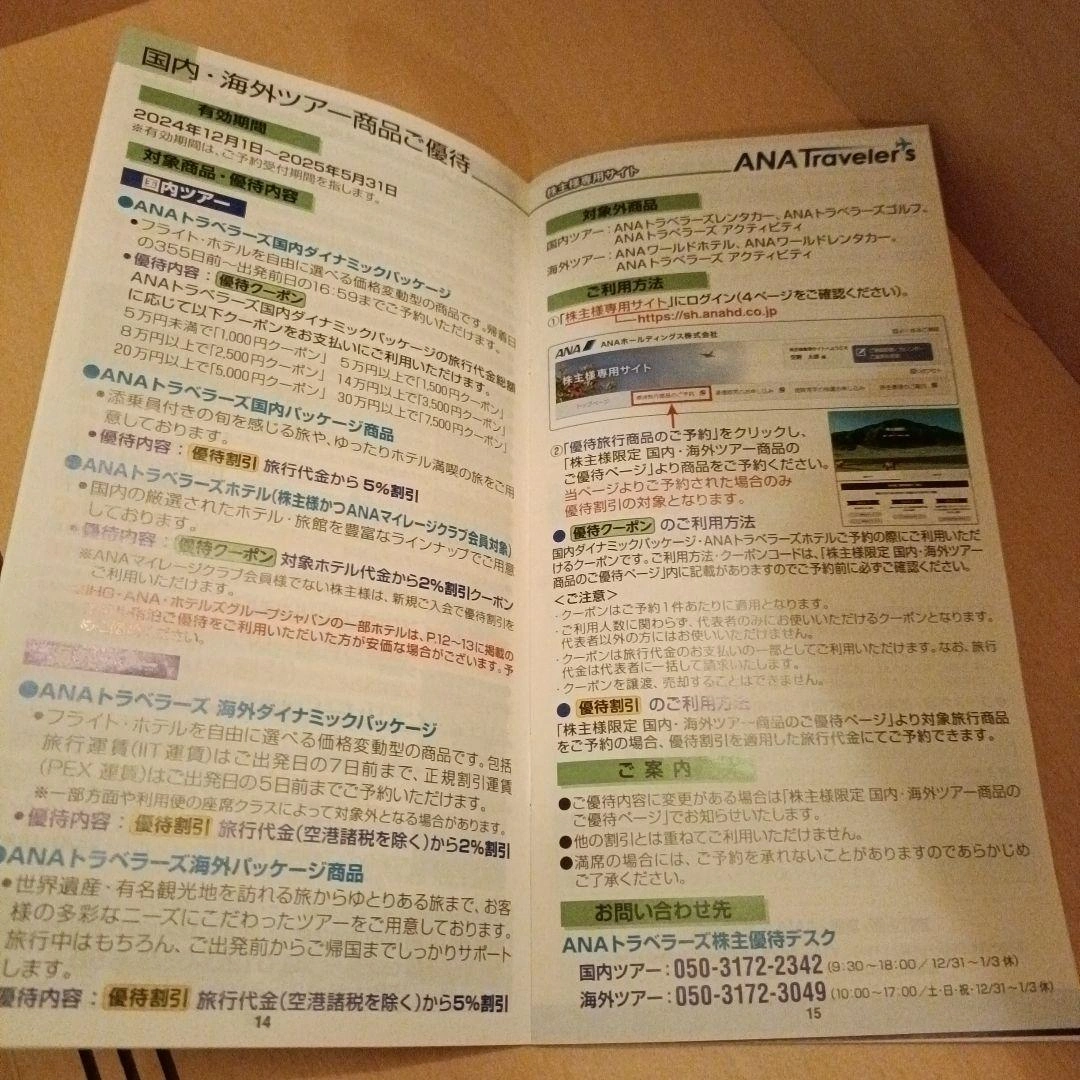 国内・海外ツアー商品ご優待
有効期間
2024年12月1日～2025年5月31日
※有効期間は、ご予約受付期間を指します。
対象商品・優待内容
国内ツアー
●ANAトラベラーズ国内ダイナミックパッケージ
●フライト・ホテルを自由に選べる価格変動型の商品です。帰着日
の355日前～出発前日の16:59までご予約いただけます。
●優待内容：優待クーポン
ANAトラベラーズ国内ダイナミックパッケージの旅行代金総額
に応じて以下クーポンをお支払いにご利用いただけます。
5万円未満で「1,000円クーポン」 5万円以上で「1,500円クーポン」
8万円以上で「2,500円クーポン」 14万円以上で「3,500円クーポン」
20万円以上で「5,000円クーポン」 30万円以上で「7,500円クーポン」
●ANAトラベラーズ国内パッケージ商品
●添乗員付きの旬を感じる旅や、ゆったりホテル満喫の旅をご用
意しております。
●優待内容：優待割引 旅行代金から5%割引
●ANAトラベラーズホテル(株主様かつANAマイレージクラブ会員対象)
●国内の厳選されたホテル・旅館を豊富なラインナップでご用意
しております。
●優待内容：優待クーポン 対象ホテル代金から2%割引クーポン
※ANAマイレージクラブ会員様でない株主様は、新規ご入会で優待割引を
ご利用いただけます。
※IHG・ANA・ホテルズグループジャパンの一部ホテルは、P.12～13に掲載の
宿泊ご優待をご利用いただいた方が安価な場合がございます。予
ください。
●ANAトラベラーズ 海外ダイナミックパッケージ
●フライト・ホテルを自由に選べる価格変動型の商品です。包括
旅行運賃(IIT運賃)はご出発日の7日前まで、正規割引運賃
(PEX 運賃)はご出発日の5日前までご予約いただけます。
※一部方面や利用便の座席クラスによって対象外となる場合があります。
●優待内容：優待割引 旅行代金(空港諸税を除く)から2%割引
●ANAトラベラーズ海外パッケージ商品
●世界遺産・有名観光地を訪れる旅からゆとりある旅まで、お客
様の多彩なニーズにこだわったツアーをご用意しております。
旅行中はもちろん、ご出発前からご帰国までしっかりサポート
します。
優待内容：優待割引 旅行代金(空港諸税を除く)から5%割引
14
株主様専用サイト
ANA Traveler's
対象外商品
国内ツアー：ANAトラベラーズレンタカー、ANAトラベラーズゴルフ、
ANAトラベラーズ アクティビティ
海外ツアー：ANAワールドホテル、ANAワールドレンタカー、
ANAトラベラーズ アクティビティ
ご利用方法
①「株主様専用サイト」にログイン(4ページをご確認ください)。
https://sh.anahd.co.jp
ANA ANAホールディングス株式会社
株主様専用サイト
トップページ
②「優待旅行商品のご予約」をクリックし、
「株主様限定 国内・海外ツアー商品の
ご優待ページ」より商品をご予約ください。
当ページよりご予約された場合のみ
優待割引の対象となります。
●優待クーポン のご利用方法
国内ダイナミックパッケージ・ANAトラベラーズホテルご予約の際にご利用いただ
けるクーポンです。ご利用方法・クーポンコードは、「株主様限定 国内・海外ツアー
商品のご優待ページ」内に記載がありますのでご予約前に必ずご確認ください。
＜ご注意＞
・クーポンはご予約1件あたりに適用となります。
・ご利用人数に関わらず、代表者のみにお使いいただけるクーポンとなります。
代表者以外の方にはお使いいただけません。
・クーポンは旅行代金のお支払いの一部としてご利用いただけます。なお、旅行
代金は代表者に一括して請求いたします。
・クーポンを譲渡、売却することはできません。
●優待割引 のご利用方法
「株主様限定 国内・海外ツアー商品のご優待ページ」より対象旅行商品
をご予約の場合、優待割引を適用した旅行代金にてご予約できます。
ご案内
●ご優待内容に変更がある場合は「株主様限定 国内・海外ツアー商品の
ご優待ページ」でお知らせいたします。
●他の割引とは重ねてご利用いただけません。
●満席の場合には、ご予約を承れないことがありますのであらかじめ
ご了承ください。
お問い合わせ先
ANAトラベラーズ株主優待デスク
国内ツアー：050-3172-2342(9:30～18:00／12/31～1/3休)
海外ツアー：050-3172-3049(10:00～17:00／土・日・祝・12/31～1/3休)
15